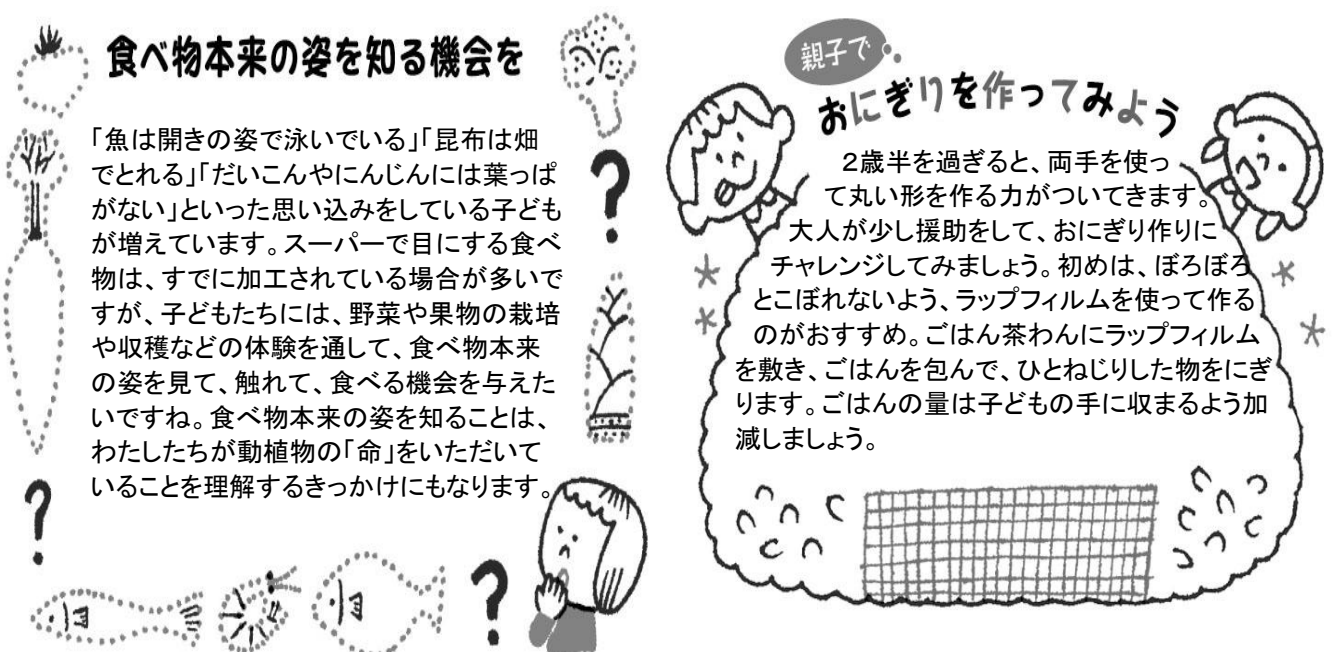 食べ物本来の姿を知る機会を
「魚は開きの姿で泳いでいる」「昆布は畑
でとれる」「だいこんやにんじんには葉っぱ
がない」といった思い込みをしている子ども
が増えています。スーパーで目にする食べ
物は、すでに加工されている場合が多いで
すが、子どもたちには、野菜や果物の栽培
や収穫などの体験を通して、食べ物本来
の姿を見て、触れて、食べる機会を与えた
いですね。食べ物本来の姿を知ることは、
わたしたちが動植物の「命」をいただいて
いることを理解するきっかけにもなります。
?
?
?
親子で
おにぎりを作ってみよう
2歳半を過ぎると、両手を使っ
て丸い形を作る力がついてきます。
大人が少し援助をして、おにぎり作りに
チャレンジしてみましょう。初めは、ぼろぼろ
とこぼれないよう、ラップフィルムを使って作る
のがおすすめ。ごはん茶わんにラップフィルム
を敷き、ごはんを包んで、ひとねじりした物をにぎ
ります。ごはんの量は子どもの手に収まるよう加
減しましょう。